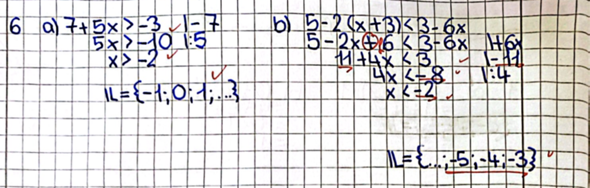 6 a) 7+5x>-3 |-7
5x>-10 |:5
x>-2
𝕃={-1;0;1;...}
b) 5-2(x+3)<3-6x
5-2x+6<3-6x |+6x
11+4x<3 |-11
4x<-8 |:4
x<-2
𝕃={...;-5;-4;-3}